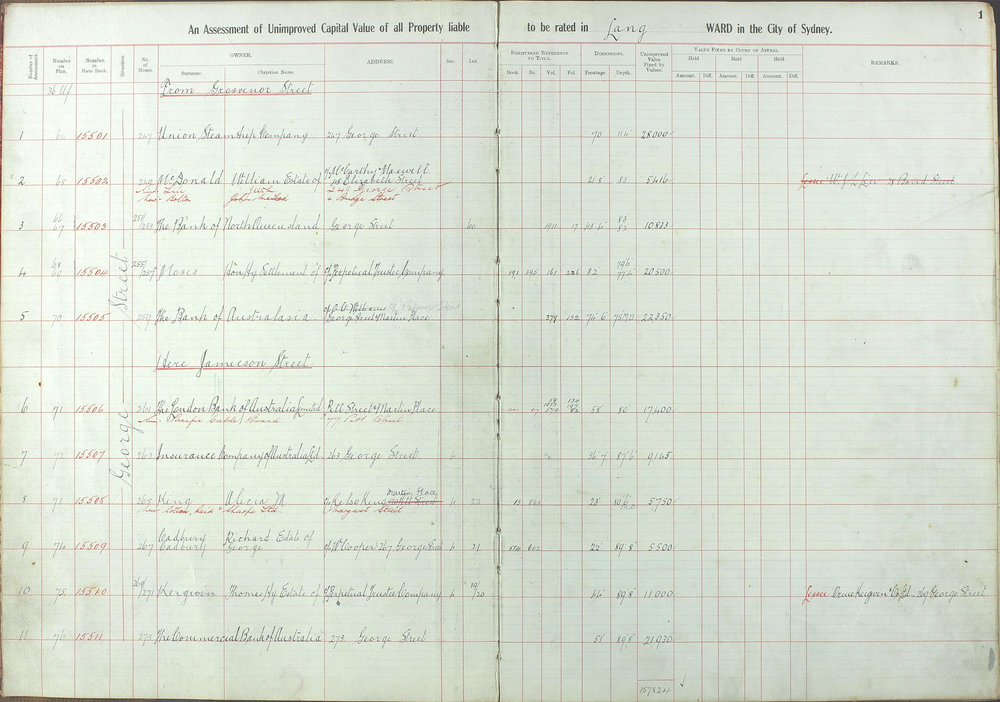 1
An Assessment of Unimproved Capital Value of all Property liable to be rated in Lang WARD in the City of Sydney.
Number of Assessment. Number on Plan. Number in Rate Book. Situation. No. of House. OWNER. Surname. Christian Name. ADDRESS. Sec. Lot. REGISTERED REFERENCE TO TITLE. Book. No. Vol. Fol. DIMENSIONS. Frontage. Depth. Unimproved Value Fixed by Valuer. VALUE FIXED BY COURT OF APPEAL. Held Amount. Diff. Held Amount. Diff. Held Amount. Diff. REMARKS.
From Grosvenor Street
George Street
1 64 15501 247 Union Steamship Company 247 George Street 70 114 28000
2 65 15502 249 McDonald William Estate of McCarthy & Maxwell
Elizabeth Street 21 8 83 5416 Lessee W J L Bond Street
now 249 George Street
now Rolton John & Bridge Street
3 66/67 15503 251/253 The Bank of North Queensland George Street 60 1911 17 43 4 83/82 10833
4 68/69 15504 255/257 Moses Hy Settlement of c/ Perpetual Trustee Company 191 395 161 226 82 20500
5 70 15505 259 The Bank of Australasia c/o C C Williams
George Street & Martin Place 279 132 75 6 22350
Here Jamieson Street
6 71 15506 261 The London Bank of Australia Limited Pitt Street & Martin Place 58 80 17400
now Pacific Cable Board 77 Pitt Street
7 72 15507 263 Insurance Company of Australia Ltd 263 George Street 4 36 7 87 6 9145
Martin Place
8 73 15508 265 King Alicia M 4 22 13 862 23 5750
now Cotton, Reid & Sharpe Ltd Margaret Street
Cadbury Richard Estate of
9 74 15509 267 Cadbury George c/ W Cooper 267 George Street 4 21 22 89 8 5500
10 75 15510 269/271 Kerguin Thomas Hy Estate of c/ Perpetual Trustee Company 4 19/20 44 89 8 11,000 Lessee 267 George Street
11 76 15511 273 The Commercial Bank of Australia 273 George Street 51 89 8 21,930
157824